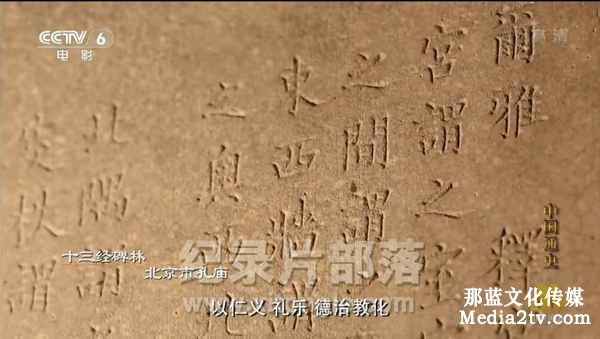 CCTV 6
电影
高清
爾雅 釋
宮謂之室
之間謂
東西牆謂
之奧西北
北隅謂
窔柣謂
中国通史
十三经碑林
北京市孔庙
纪录片部落
以仁义 礼乐 德治教化
那蓝文化传媒
Media2tv.com